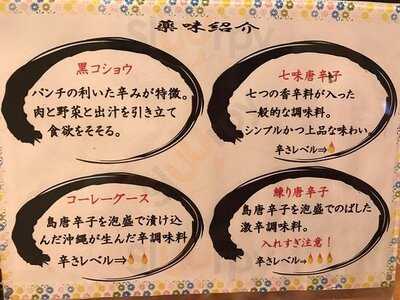 薬味紹介
黒コショウ
パンチの利いた辛みが特徴。
肉と野菜と出汁を引き立て
食欲をそそる。
七味唐辛子
七つの香辛料が入った
一般的な調味料。
シンプルかつ上品な味わい。
辛さレベル⇒
コーレーグース
島唐辛子を泡盛で漬け込
んだ沖縄が生んだ辛調味料
辛さレベル⇒
練り唐辛子
島唐辛子を泡盛でのばした
激辛調味料。
入れすぎ注意！
辛さレベル⇒